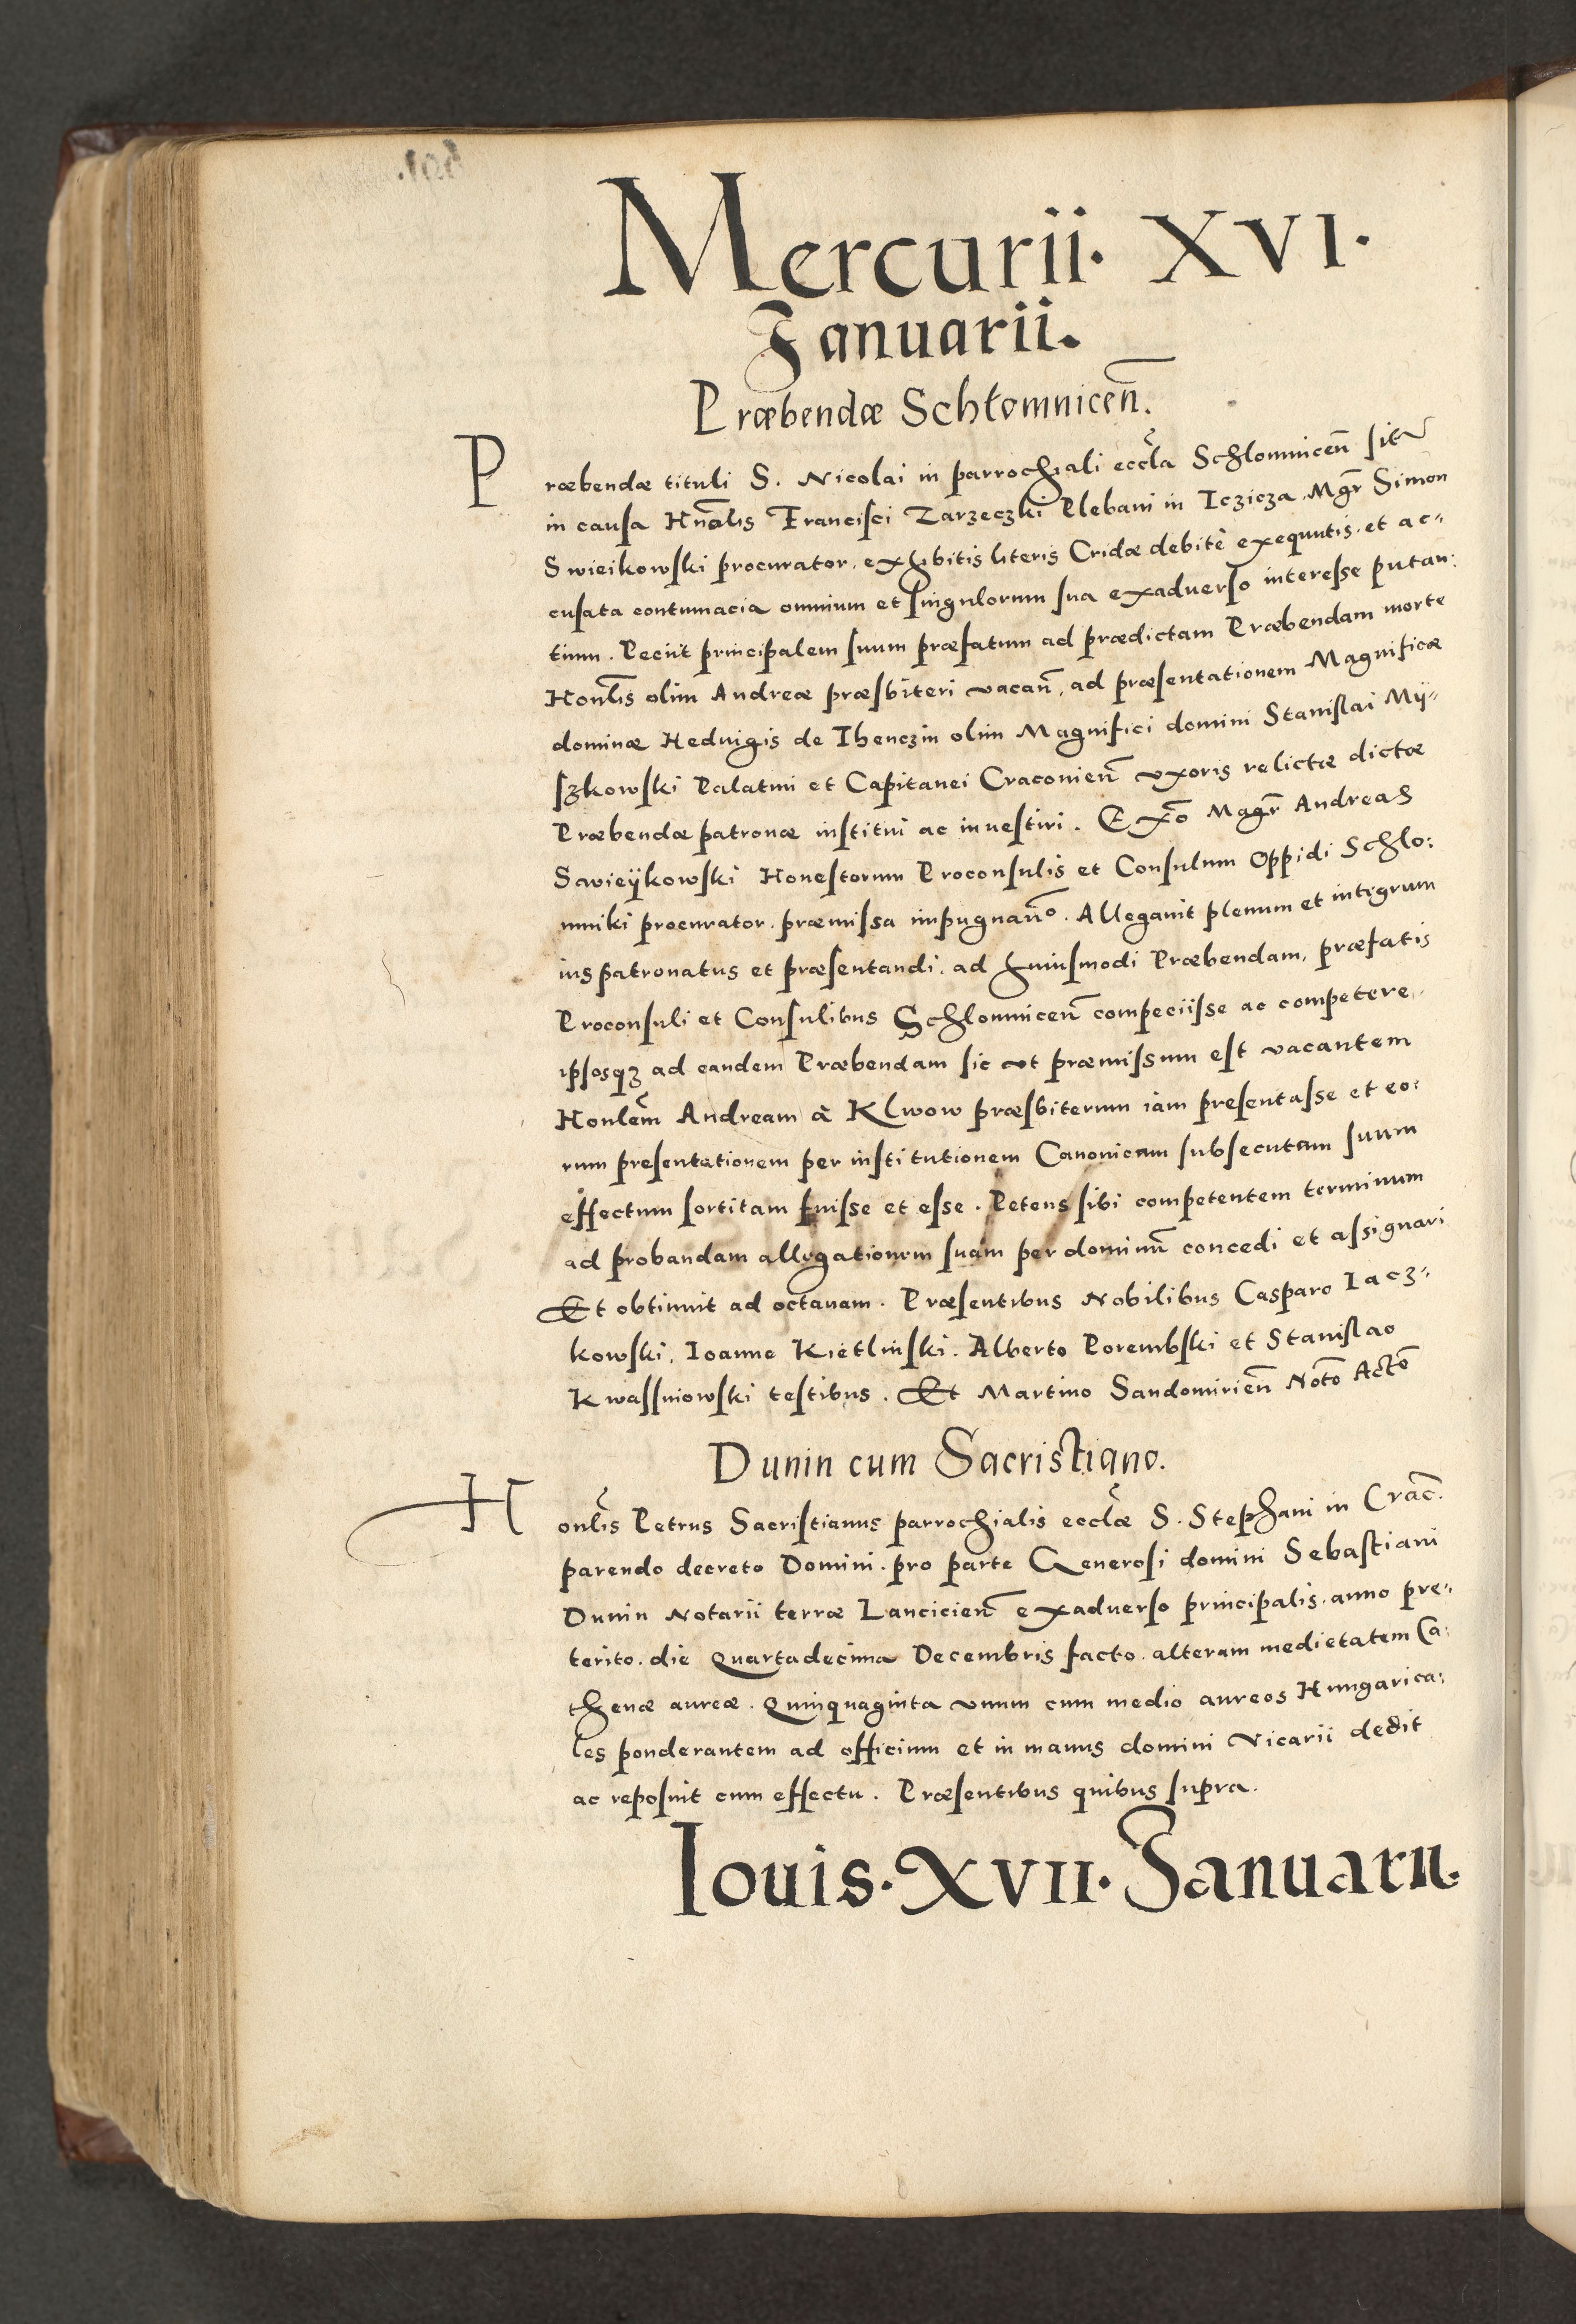 Mercurii. XVI.
Januarii.
Præbendæ Schłomnicen̄.
Præbendæ tituli S. Nicolai in parrochiali eccl̃a Schlomnicen̄ sitæ
in causa Hn̄alis Francisci Zarzeczki Plebani in Iczicza. Mgr̄ Simon
Swieikowski procurator, exhibitis literis Cridæ debitè exequutis. et ac-
cusata contumacia omnium et singulorum sua exaduerso interesse putan:
tium. Peciit principalem suum præfatum ad prædictam Præbendam morte
Honl̄is olim Andreæ præsbiteri vacan̄, ad præsentationem Magnificæ
dominæ Heduigis de Thenczin olim Magnifici domini Stanislai Mÿ-
szkowski Palatini et Capitanei Cracouien̄ vxoris relictæ dictæ
Præbendæ patronæ institui ac inuestiri. Exō Magr̄ Andreas
Swieÿkowski Honestorum Proconsulis et Consulum Oppidi Schlo:
mniki procurator. præmissa impugnan̄o. Allegauit plenum et integrum
ius patronatus et præsentandi. ad huiusmodi Præbendam, præfatis
Proconsuli et Consulibus Schlomnicen̄ competiisse ac competere,
ipsosqꝫ ad eandem Præbendam sic vt præmissum est vacantem
Honl̃em Andream à Klwow præsbiterum iam presentasse et eo:
rum presentationem per institutionem Canonicam subsecutam suum
effectum sortitam fuisse et esse. Petens sibi competentem terminum
ad probandam allegationem suam per dominū concedi et assignari
Et obtinuit ad octauam. Præsentibus Nobilibus Casparo Iacz-
kowski, Ioanne Kietlinski. Alberto Porembski et Stanislao
Kwassniowski testibus. Et Martino Sandomirien̄ Notō Actō
Dunin cum Sacristiano.
Honl̃is Petrus Sacristianus parrochialis eccl̃æ S. Stephani in Crac̄.
parendo decreto Domini. pro parte Generosi domini Sebastiani
Dunin Notarii terræ Lancicien̄ exaduerso principalis. anno pre-
terito. die Quartadecima Decembris facto. alteram medietatem Ca:
thenæ aureæ. Quinquaginta vnum cum medio aureos Hungarica:
les ponderantem ad officium et in manus domini Vicarii dedit
ac reposuit cum effectu. Præsentibus quibus supra.
Iouis. XVII. Januarii.